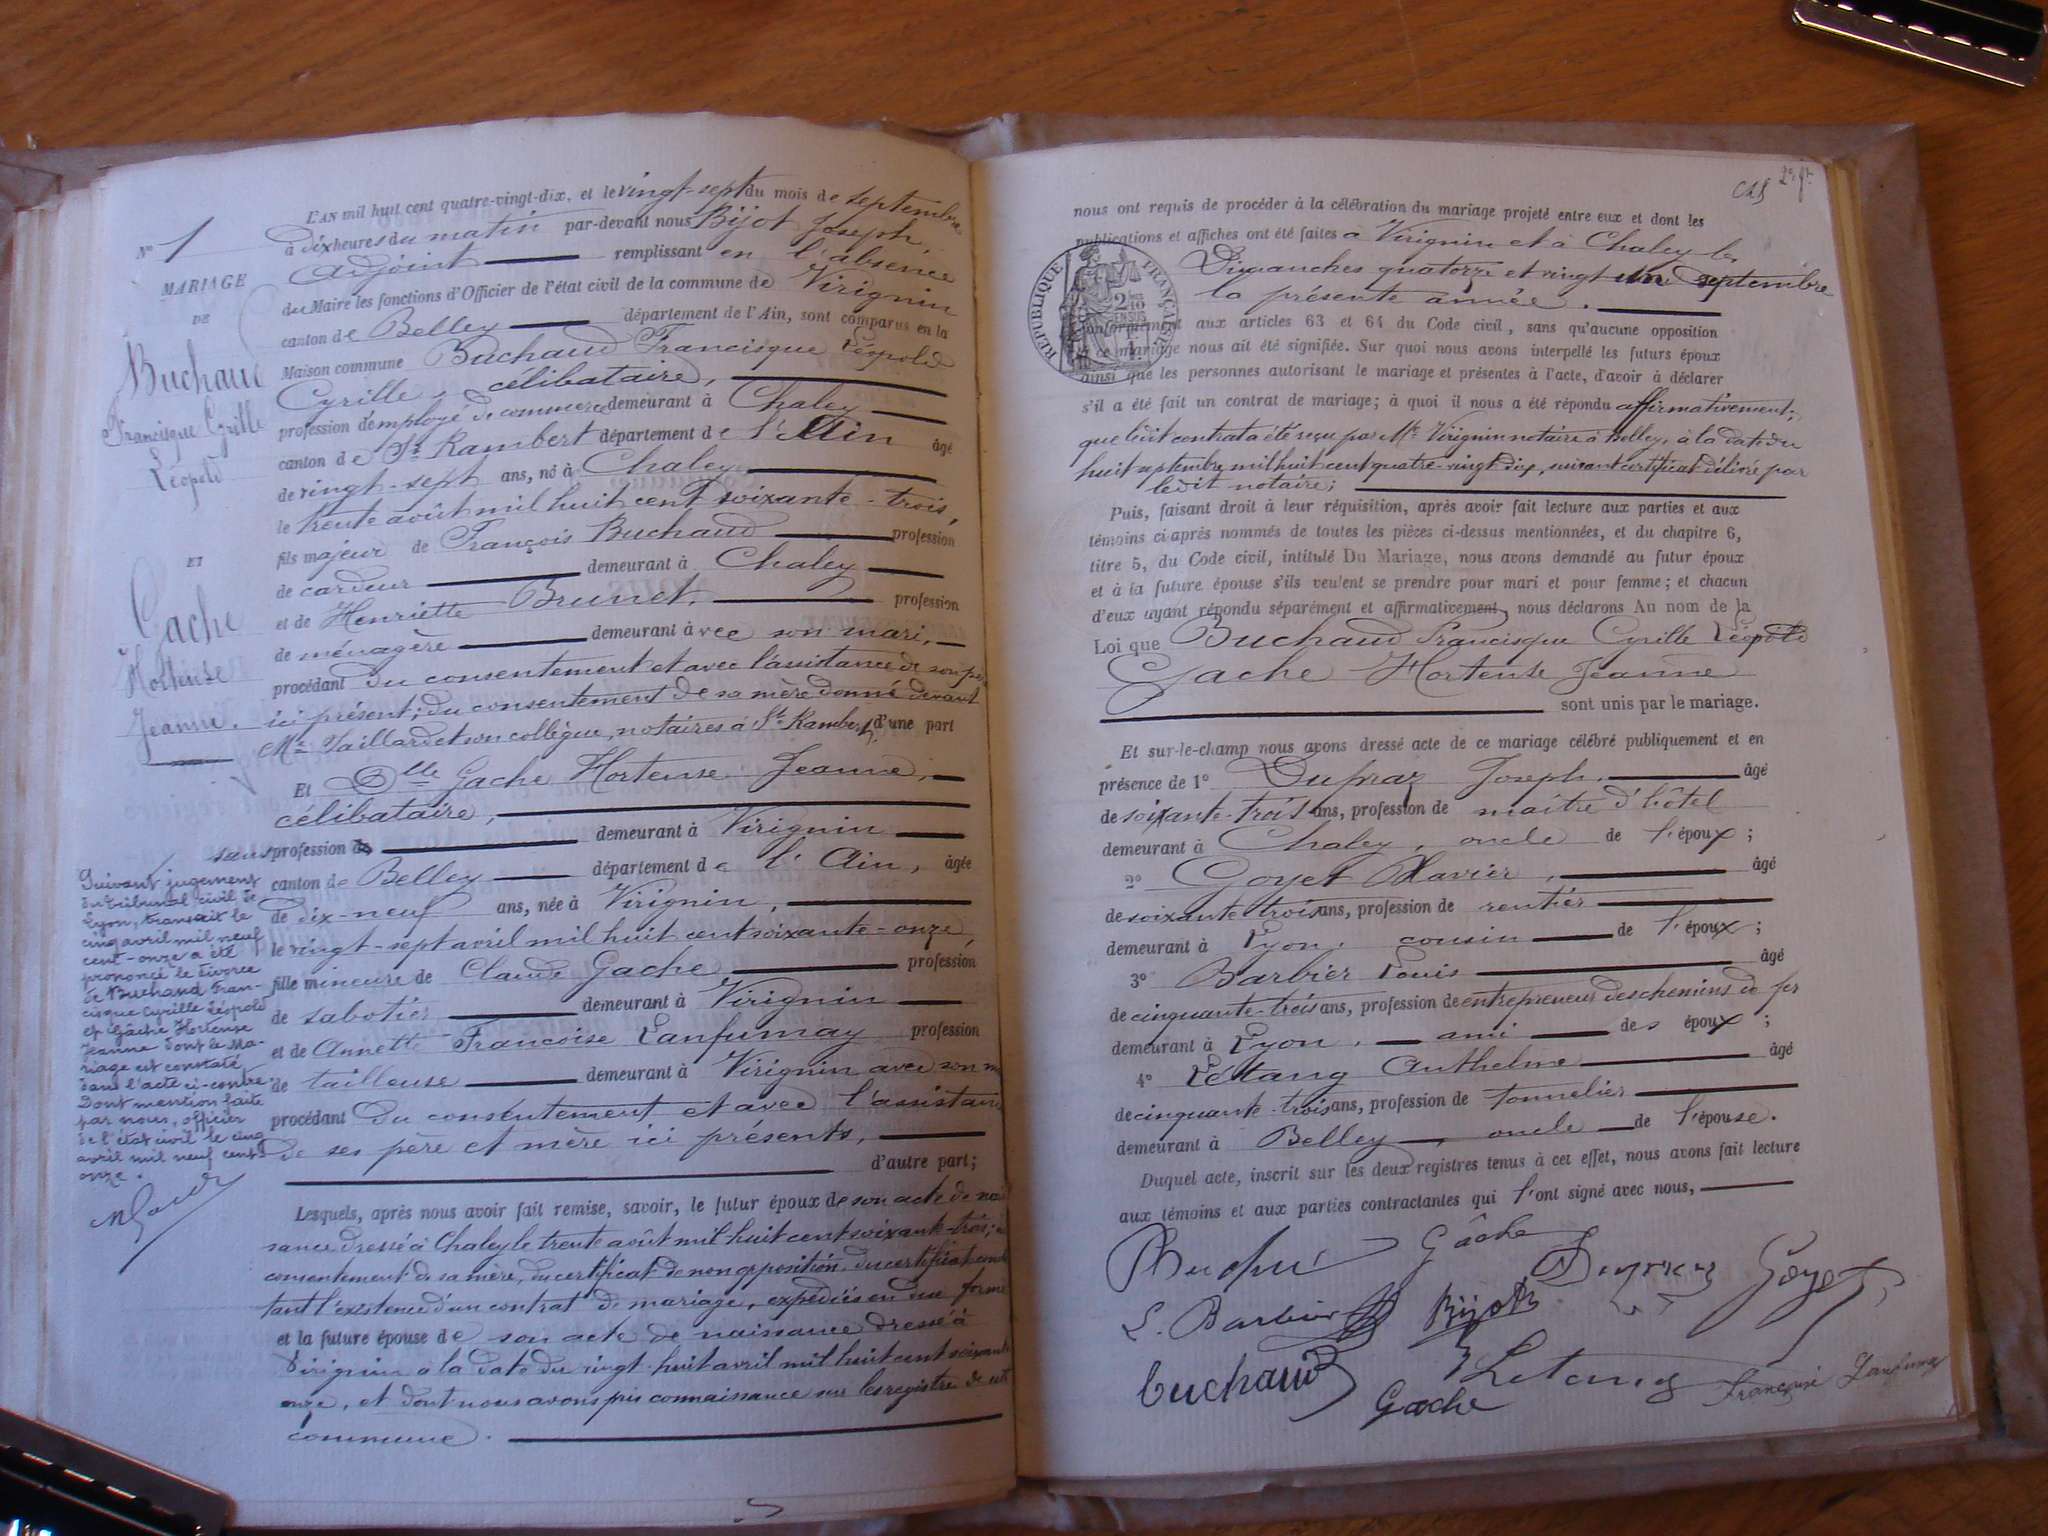 N° 1
MARIAGE
DE
Buchaud
Francisque Cyrille
Léopold
ET
Gache
Hortense
Jeanne.
Suivant jugement
du tribunal civil de
Lyon, transcrit le
cinq avril mil neuf
cent-onze a été
prononcé le divorce
de Buchaud Fran-
cisque Cyrille Léopold
et Gâche Hortense
Jeanne dont le Ma-
riage est constaté
dans l'acte ci-contre.
Dont mention faite
par nous, officier
de l'état civil le cinq
avril mil neuf cent
onze.
L'AN mil huit cent quatre-vingt-dix, et le vingt-sept du mois de septembre
à dix heures du matin par-devant nous Bijot Joseph,
Adjoint remplissant en l'absence
du Maire les fonctions d'Officier de l'état civil de la commune de Virignin
canton de Belley département de l'Ain, sont comparus en la
Maison commune Buchaud Francisque Léopold
Cyrille, célibataire,
profession d'employé de commerce demeurant à Chaley
canton de St Rambert département de l'Ain âgé
de vingt-sept ans, né à Chaley
le trente août mil huit cent soixante-trois,
fils majeur de François Buchaud profession
de cardeur demeurant à Chaley
et de Henriette Brunet, profession
de ménagère demeurant avec son mari,
procédant du consentement et avec l'assistance de son père
ici présent; du consentement de sa mère donné devant
Me Taillard et son collègue, notaires à St Rambert, d'une part
Et Dlle Gache Hortense Jeanne,
célibataire,
sans profession de demeurant à Virignin
canton de Belley département de l'Ain, âgée
de dix-neuf ans, née à Virignin,
le vingt-sept avril mil huit cent soixante-onze,
fille mineure de Claude Gache profession
de sabotier demeurant à Virignin
et de Annette Françoise Lanfumay profession
de tailleuse demeurant à Virignin avec son
procédant du consentement et avec l'assistance
de ses père et mère ici présents,
d'autre part;
Lesquels, après nous avoir fait remise, savoir, le futur époux de son acte de nais
sance dressé à Chaley le trente août mil huit cent soixante-trois;
consentement de sa mère, du certificat de non opposition, du certificat consta
tant l'existence d'un contrat de mariage, expédiés en due forme
et la future épouse de son acte de naissance dressé à
Virignin à la date du vingt-huit avril mil huit cent soixante
onze, et dont nous avons pris connaissance sur les registres de cette
commune.
nous ont requis de procéder à la célébration du mariage projeté entre eux et dont les
publications et affiches ont été faites à Virignin et à Chaley les
Dimanches quatorze et vingt un septembre
la présente année.
RÉPUBLIQUE FRANÇAISE
conformément aux articles 63 et 64 du Code civil, sans qu'aucune opposition
à ce mariage nous ait été signifiée. Sur quoi nous avons interpellé les futurs époux
ainsi que les personnes autorisant le mariage et présentes à l'acte, d'avoir à déclarer
s'il a été fait un contrat de mariage; à quoi il nous a été répondu affirmativement;
que ledit contrat a été reçu par Me Virignin notaire à Belley, à la date du
huit septembre mil huit cent quatre-vingt dix, suivant certificat délivré par
ledit notaire;
Puis, faisant droit à leur réquisition, après avoir fait lecture aux parties et aux
témoins ci-après nommés de toutes les pièces ci-dessus mentionnées, et du chapitre 6,
titre 5, du Code civil, intitulé Du Mariage, nous avons demandé au futur époux
et à la future épouse s'ils veulent se prendre pour mari et pour femme; et chacun
d'eux ayant répondu séparément et affirmativement, nous déclarons Au nom de la
Loi que Buchaud Francisque Cyrille Léopold
Gache Hortense Jeanne
sont unis par le mariage.
Et sur-le-champ nous avons dressé acte de ce mariage célébré publiquement et en
présence de 1° Dupraz Joseph, âgé
de soixante-trois ans, profession de maître d'hôtel
demeurant à Chaley, oncle de l'époux;
2° Goyet Xavier, âgé
de soixante-trois ans, profession de rentier
demeurant à Lyon, cousin de l'époux;
3° Barbier Louis âgé
de cinquante-trois ans, profession de entrepreneur des chemins de fer
demeurant à Lyon, ami des époux;
4° Létang Anthelme âgé
de cinquante-trois ans, profession de tonnelier
demeurant à Belley, oncle de l'épouse.
Duquel acte, inscrit sur les deux registres tenus à cet effet, nous avons fait lecture
aux témoins et aux parties contractantes qui l'ont signé avec nous,
Gâche Dupraz Goyet
L. Barbier Bijot
buchaud Letang Françoise Lanfumay
Gache